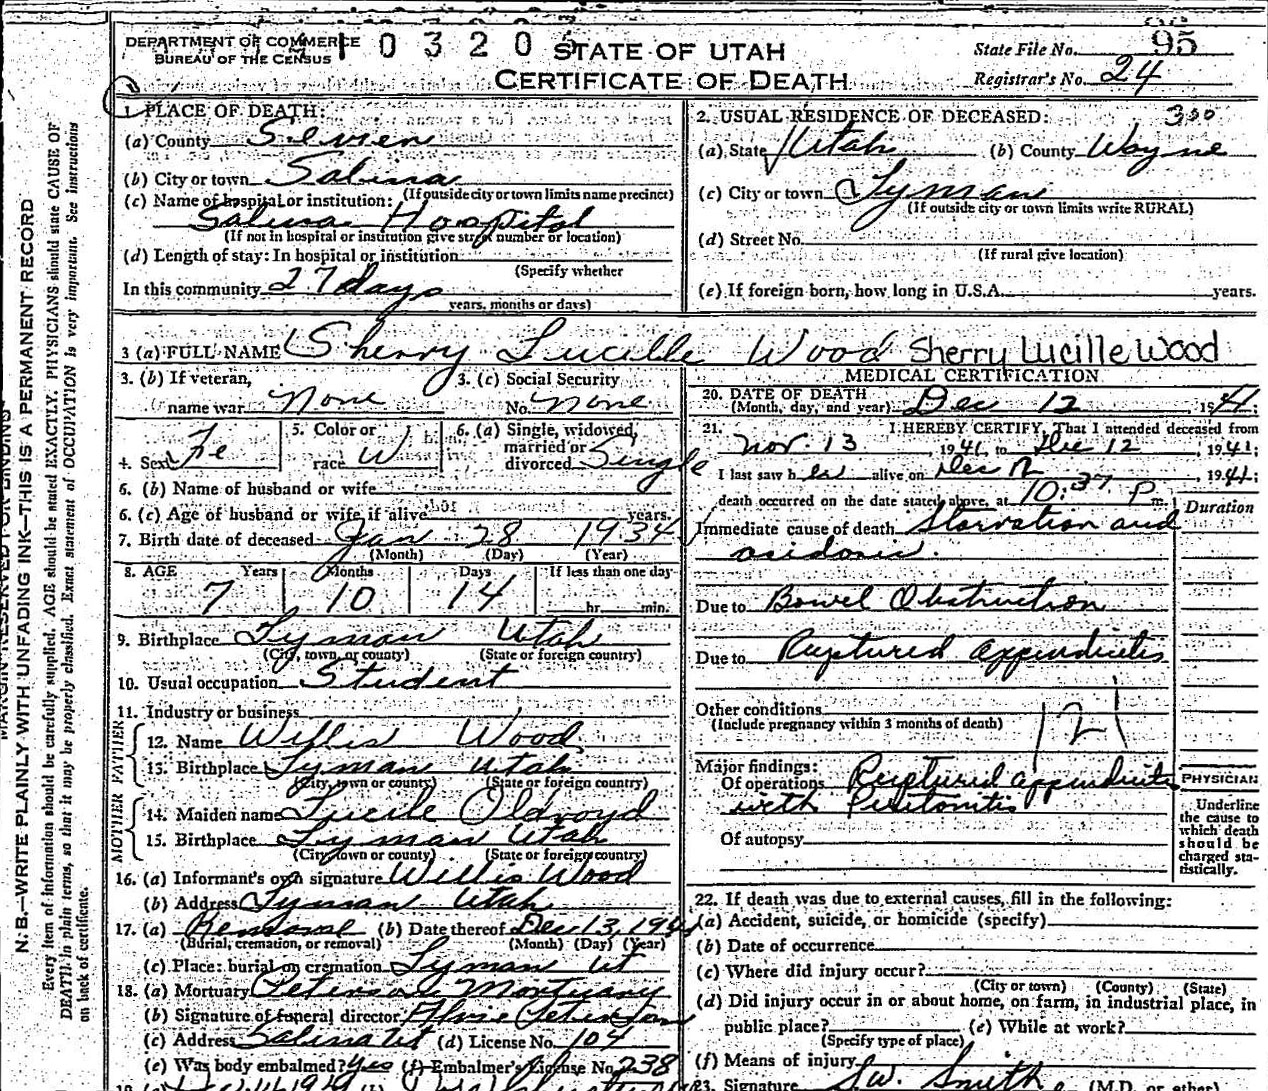 DEPARTMENT OF COMMERCE
BUREAU OF THE CENSUS
1 0 3 2 0 5
STATE OF UTAH
CERTIFICATE OF DEATH
State File No. 95
Registrar's No. 24
MARGIN RESERVED FOR BINDING
N. B.—WRITE PLAINLY WITH UNFADING INK—THIS IS A PERMANENT RECORD
Every item of information should be carefully supplied. AGE should be stated EXACTLY. PHYSICIANS should state CAUSE OF
DEATH in plain terms, so that it may be properly classified. Exact statement of OCCUPATION is very important. See instructions
on back of certificate.
1. PLACE OF DEATH:
(a) County Sevier
(b) City or town Salina
(If outside city or town limits name precinct)
(c) Name of hospital or institution:
Salina Hospital
(If not in hospital or institution give street number or location)
(d) Length of stay: In hospital or institution
(Specify whether
In this community 27 days
years, months or days)
2. USUAL RESIDENCE OF DECEASED: 300
(a) State Utah (b) County Wayne
(c) City or town Lyman
(If outside city or town limits write RURAL)
(d) Street No.
(If rural give location)
(e) If foreign born, how long in U.S.A. years.
3 (a) FULL NAME Sherry Lucille Wood Sherry Lucille Wood
3. (b) If veteran,
name war None
3. (c) Social Security
No. none
4. Sex Fe
5. Color or
race W
6. (a) Single, widowed,
married or
divorced Single
6. (b) Name of husband or wife
6. (c) Age of husband or wife if alive years.
7. Birth date of deceased Jan 28 1934
(Month) (Day) (Year)
8. AGE Years Months Days If less than one day
7 10 14 hr. min.
9. Birthplace Lyman Utah
(City, town, or county) (State or foreign country)
10. Usual occupation Student
11. Industry or business
FATHER
12. Name Willis Wood
13. Birthplace Lyman Utah
(City, town or county) (State or foreign country)
MOTHER
14. Maiden name Lucile Oldroyd
15. Birthplace Lyman Utah
(City, town or county) (State or foreign country)
16. (a) Informant's own signature Willis Wood
(b) Address Lyman Utah
17. (a) Removal (b) Date thereof Dec 13, 1941
(Burial, cremation, or removal) (Month) (Day) (Year)
(c) Place: burial or cremation Lyman Ut
18. (a) Mortuary Peterson Mortuary
(b) Signature of funeral director Peterson
(c) Address Salina Ut (d) License No. 104
(e) Was body embalmed? yes (f) Embalmer's License No. 238
MEDICAL CERTIFICATION
20. DATE OF DEATH
(Month, day, and year) Dec 12, 1941;
21. I HEREBY CERTIFY, That I attended deceased from
Nov. 13, 1941, to Dec 12, 1941;
I last saw her alive on Dec 12, 1941;
death occurred on the date stated above, at 10:37 P m.
Duration
Immediate cause of death Starvation and
acidosis.
Due to Bowel Obstruction
Due to Ruptured appendicitis
Other conditions
(Include pregnancy within 3 months of death)
121
Major findings:
Of operations Ruptured appendicitis
with Peritonitis
Of autopsy
PHYSICIAN
Underline
the cause to
which death
should be
charged sta-
tistically.
22. If death was due to external causes, fill in the following:
(a) Accident, suicide, or homicide (specify)
(b) Date of occurrence
(c) Where did injury occur?
(City or town) (County) (State)
(d) Did injury occur in or about home, on farm, in industrial place, in
public place? (e) While at work?
(Specify type of place)
(f) Means of injury
23. Signature Smith (M.D. or other)